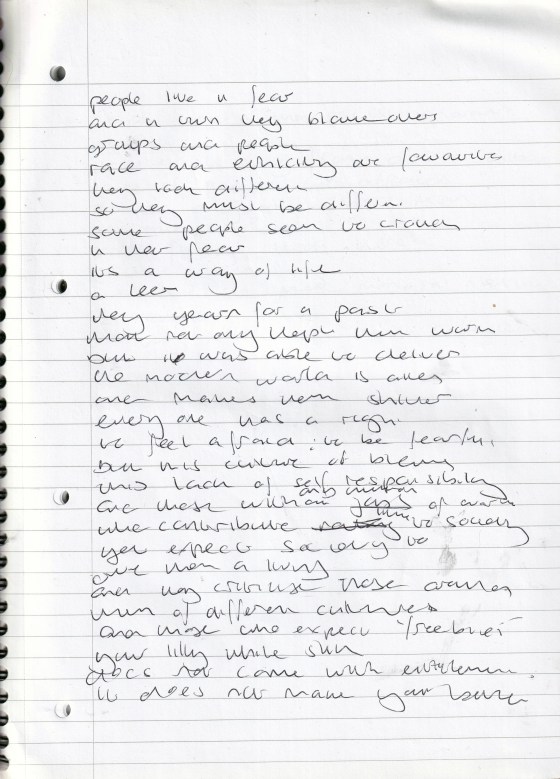 people live in fear
and in turn they blame others
groups and people
race and ethnicity are favourites
they look different
so they must be different
some people seem to crouch
in their fear
its a way of life
a
they yearn for a past
that not only kept them warm
but it was able to deliver
the modern world is alien
and makes them shiver
every one has a right
to feel afraid : to be fearful
but this culture of blaming
this lack of self responsibility
are those without jobs of
who contribute little to society
yet expect society to
give them a living
and they criticise those around
them of different cultures
and those who expect 'freebies'
your lilly white skin
does not come with entitlement.
it does not make you better